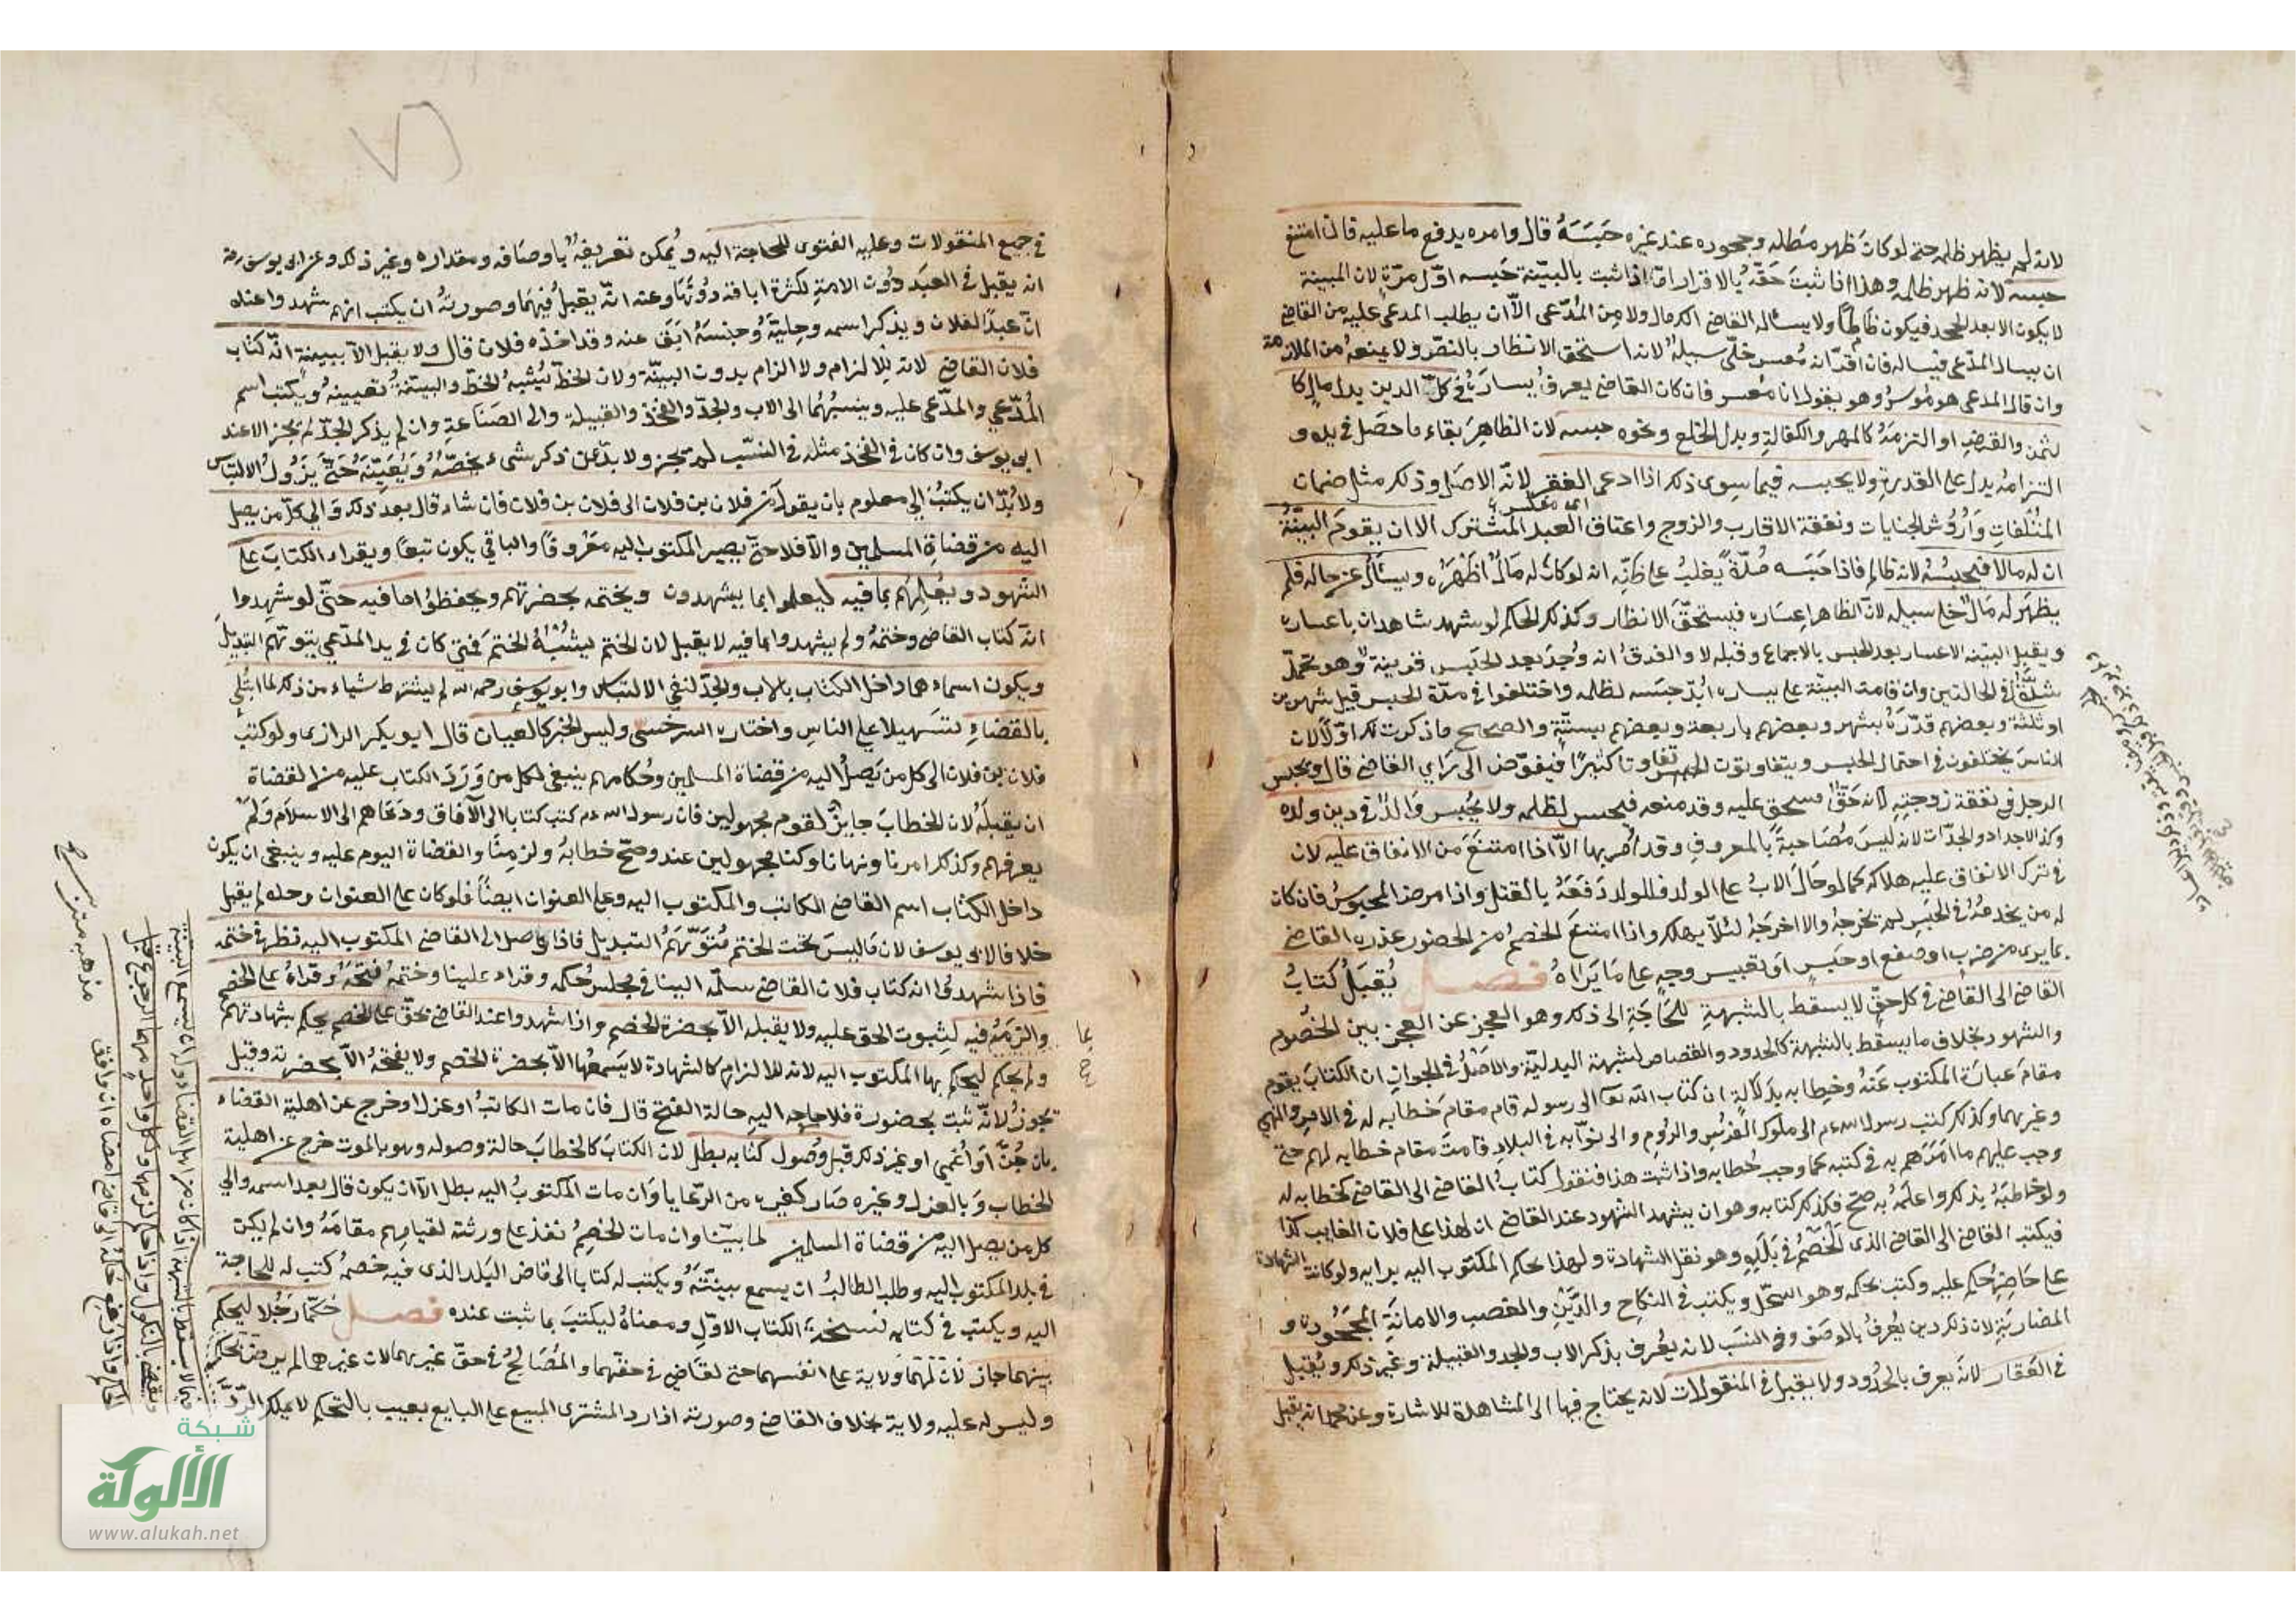 لانه لم يظهر ظلمه حتى لو كان ظهر مطله وجحوده عند غيره حبسه قال وامره بدفع ما عليه فان امتنع
حبسه لانه ظهر ظلمه وهذا اذا ثبت حقه بالاقرار اما اذا ثبت بالبينة حبسه اول مرة لان البينة
لا يكون الا بعد الجحد فيكون ظالما ولا يسأله القاضي الك مال ولا من المدعي الا ان يطلب المدعى عليه من القاضي
ان يسال المدعي فيساله فان اقر انه معسر خلى سبيله لانه استحق الانتظار بالنص ولا يمنعه من الملازمة
وان قال المدعي هو موسر وهو يقول انا معسر فان كان القاضي يعرف يساره في كل الدين بدل مال كا
لثمن والقرض او التزمه كالمهر والكفالة وبدل الخلع ونحوه حبسه لان الظاهر بقاء ما حصل في يده و
التزامه يدل على القدرة ولا يحبسه فيما سوى ذلك اذا ادعى الفقر لانه الاصل وذلك مثل ضمان
المتلفات واروش الجنايات ونفقة الاقارب والزوج واعتاق العبد المشترك الا ان يقوم البينة
ان له مالا فيحبسه لانه ظالم فاذا حبسه مدة يغلب على ظنه انه لو كان له مال اظهره ويسأل عن حاله فلم
يظهر له مال خلى سبيله لان الظاهر اعساره فيستحق الانظار وكذلك الحكم لو شهد شاهدان باعساره
ويقبل البينة الاعسار بعد الحبس بالاجماع وقبله لا والفرق انه وجد بعد الحبس قرينة وهو تحمل
شدته في الحالتين وان قامت البينة على يساره ابد حبسه لظلمه واختلفوا في مدة الحبس قيل شهرين
او ثلثة وبعضهم قدره بشهر وبعضهم باربعة وبعضهم بستة والصحيح ما ذكرت لك اولا لان
الناس يختلفون في احتمال الحبس ويتفاوتون تفاوتا كثيرا فيفوض الى راي القاضي قال ويحبس
الرجل في نفقة زوجته لانه حق مستحق عليه وقد منعه فيحبس لظلمه ولا يحبس والد في دين ولده
وكذا الاجداد والجدات لانه ليس مصاحبة بالمعروف وقد امر بها الا اذا امتنع من الانفاق عليه لان
في ترك الانفاق عليه هلاكه كما لو حال الاب على الولد فللولد دفعه بالقتل واذا مرض المحبوس فان كان
له من يخدمه في الحبس لم يخرجه والا اخرجه لئلا يهلك واذا امتنع الخصم من الحضور عذره القاضي
بما يرى من ضرب او صفع او حبس او تعبيس وجه على ما يراه فصل يقبل كتاب
القاضي الى القاضي في كل حق لا يسقط بالشبهة للحاجة الى ذلك وهو العجز عن الجمع بين الخصوم
والشهود بخلاف ما يسقط بالشبهة كالحدود والقصاص لشبهة البدلية والاصل في الجواز ان الكتاب يقوم
مقام عبارة المكتوب عنه وخطابه بدلالة ان كتاب الله تعالى الى رسوله قام مقام خطابه له في الامر والنهي
وغيرهما وكذلك كتب رسول الله الى ملوك الفرس والروم والى نوابه في البلاد قامت مقام خطابه لهم حتى
وجب عليهم ما امرهم به في كتبه كما وجب بخطابه واذا ثبت هذا فنقول كتاب القاضي الى القاضي كخطابه له
ولو خاطبه بذلك واعلمه به صح فكذلك كتابه وهو ان يشهد الشهود عند القاضي ان لهذا على فلان الغايب كذا
فيكتب القاضي الى القاضي الذي الخصم في بلده وهو نقل الشهادة ولهذا يحكم المكتوب اليه برايه ولو كانت الشهادة
على حاضر حكم عليه وكتب بحكمه وهو السجل ويكتب في النكاح والدين والغصب والامانة المجحودة و
المضاربة لان ذلك دين يعرف بالوصف وفي النسب لانه يعرف بذكر الاب والجد والقبيلة وغير ذلك ويقبل
في العقار لانه يعرف بالحدود ولا يقبل في المنقولات لانه يحتاج فيها الى المشاهدة للاشارة وعن محمد انه يقبل
في جميع المنقولات وعليه الفتوى للحاجة اليه ويمكن تعريفه باوصافه ومقداره وغير ذلك وعن ابي يوسف رحمه
انه يقبل في العبد دون الامة لكثرة اباقه دونها وعنه انه يقبل فيهما وصورته ان يكتب انهم شهدوا عنده
ان عبدا لفلان ويذكر اسمه وحليته وجنسه ابق عنه وقد اخذه فلان قال ولا يقبل الا ببينة انه كتاب
فلان القاضي لانه للالزام ولا الزام بدون البينة ولان الخط يشبه الخط والبينة تعيينه ويكتب اسم
المدعي والمدعى عليه وينسبهما الى الاب والجد والفخذ والقبيلة والى الصناعة وان لم يذكر الجد لم يجز الا عند
ابي يوسف وان كان في الفخذ مثله في النسب لم يجز ولا بد من ذكر شيء يخصه ويعينه حتى يزول الالتباس
ولا بد ان يكتب الى معلوم بان يقول من فلان بن فلان الى فلان بن فلان فان شاء قال بعد ذلك والى كل من يصل
اليه من قضاة المسلمين والا فلا حتى يصير المكتوب اليه معروفا والباقي يكون تبعا ويقراء الكتاب على
الشهود ويعلمهم بما فيه ليعلموا بما يشهدون ويختمه بحضرتهم ويحفظوا ما فيه حتى لو شهدوا
انه كتاب القاضي وختمه ولم يشهدوا بما فيه لا يقبل لان الختم يشبه الختم فمتى كان في يد المدعي يتوهم التبديل
ويكون اسماءهما داخل الكتاب بالاب والجد لنفي الالتباس وابو يوسف رحمه الله لم يشترط شياء من ذلك لما ابتلي
بالقضاء تسهيلا على الناس واختاره السرخسي وليس الخبر كالعيان قال ابو بكر الرازي ولو كتب
فلان بن فلان الى كل من يصل اليه من قضاة المسلمين وحكامهم ينبغي لكل من ورد الكتاب عليه من القضاة
ان يقبله لان الخطاب جايز لقوم مجهولين فان رسول الله كتب كتابا الى الآفاق ودعاهم الى الاسلام ولم
يعرفهم وكذلك امرنا ونهانا وكنا مجهولين عنده وصح خطابه ولزمنا والقضاة اليوم عليه وينبغي ان يكون
داخل الكتاب اسم القاضي الكاتب والمكتوب اليه وعلى العنوان ايضا فلو كان على العنوان وحده لم يقبل
خلافا لابي يوسف لان ما ليس تحت الختم متوهم التبديل فاذا وصل الى القاضي المكتوب اليه نظر في ختمه
فاذا شهدوا انه كتاب فلان القاضي سلمه الينا في مجلس حكمه وقراه علينا وختمه فتحه وقراه على الخصم
والزمه ما فيه لثبوت الحق عليه ولا يقبله الا بحضرة الخصم واذا شهدوا عند القاضي بحق على الخصم يحكم بشهادتهم
ولم يحكم ليحكم بها المكتوب اليه لانه للالزام كالشهادة لا يسمعها الا بحضرة الخصم ولا يفتحه الا بحضرته وقيل
يجوز لانه ثبت بحضوره فلا حاجه اليه حالة الفتح قال فان مات الكاتب او عزل او خرج عن اهلية القضاء
بان جن او اغمي او غير ذلك قبل وصول كتابه بطل لان الكتاب كالخطاب حالة وصوله وهو بالموت خرج عن اهلية
الخطاب وبالعزل وغيره صار كغيره من الرعايا وان مات المكتوب اليه بطل الا ان يكون قال بعد اسمه والى
كل من يصل اليه من قضاة المسلمين لما بينا وان مات الخصم نفذ على ورثته لقيامهم مقامه وان لم يكن
في بلد المكتوب اليه وطلب الطالب ان يسمع بينته ويكتب له كتابا الى قاض البلد الذي فيه خصمه كتب له للحاجة
اليه ويكتب في كتابه نسخة الكتاب الاول ومعناه ليكتب بما ثبت عنده فصل حكما رجلا ليحكم
بينهما جاز لان لهما ولاية على انفسهما حتى لقاضي في حقهما والمصالح في حق غيرهما لان غيرهما لم يرض بحكمه
وليس له عليه ولاية بخلاف القاضي وصورته اذا رد المشتري المبيع على البايع بعيب بالتحكيم لا يملك الرد
شبكة
الألوكة
www.alukah.net